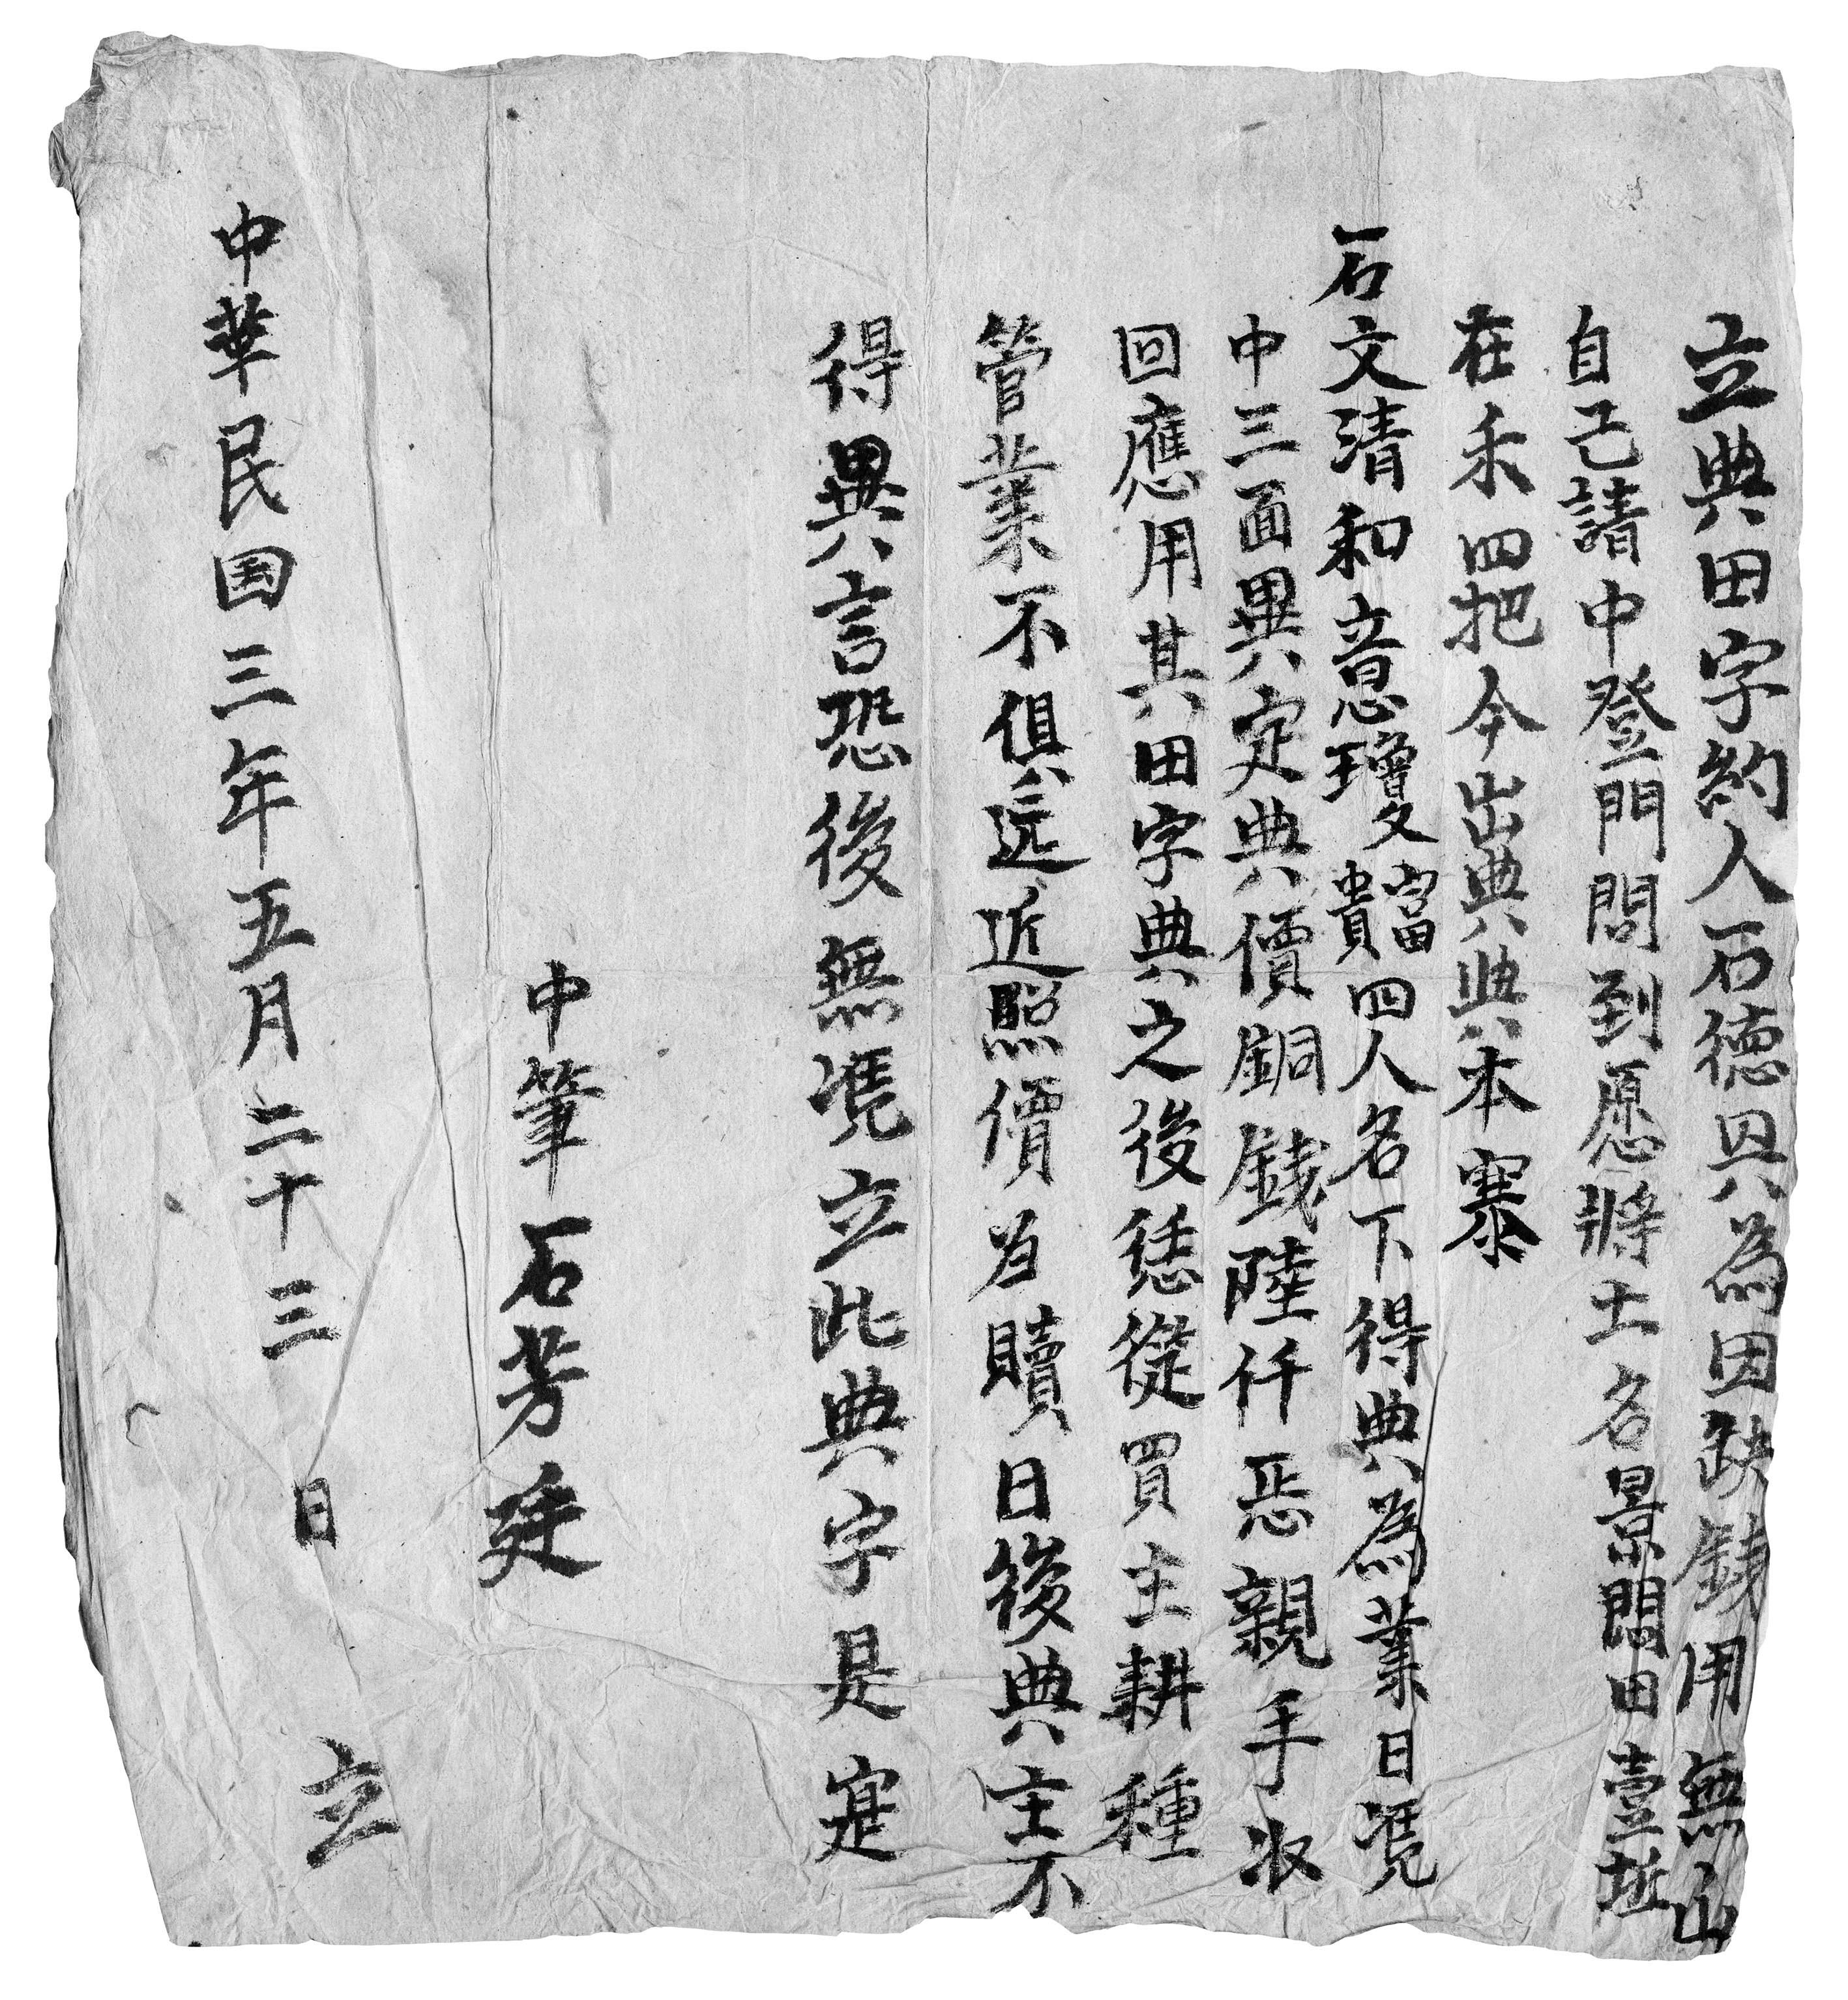 立典田字約人石德具為因缺錢用無山
自己請中登門問到愿將土名景悶田壹坵
在禾四把今出典與本寨
石文清和意瓊文富貴四人名下得典為業日憑
中三面異定典價銅錢陸仟恁親手收
回應用其田字典之後恁從買主耕種
管業不俱遠近照價為贖日後典主不
得異言恐後無憑立此典字是寔
中筆石芳廷
中華民国三年五月二十三日立